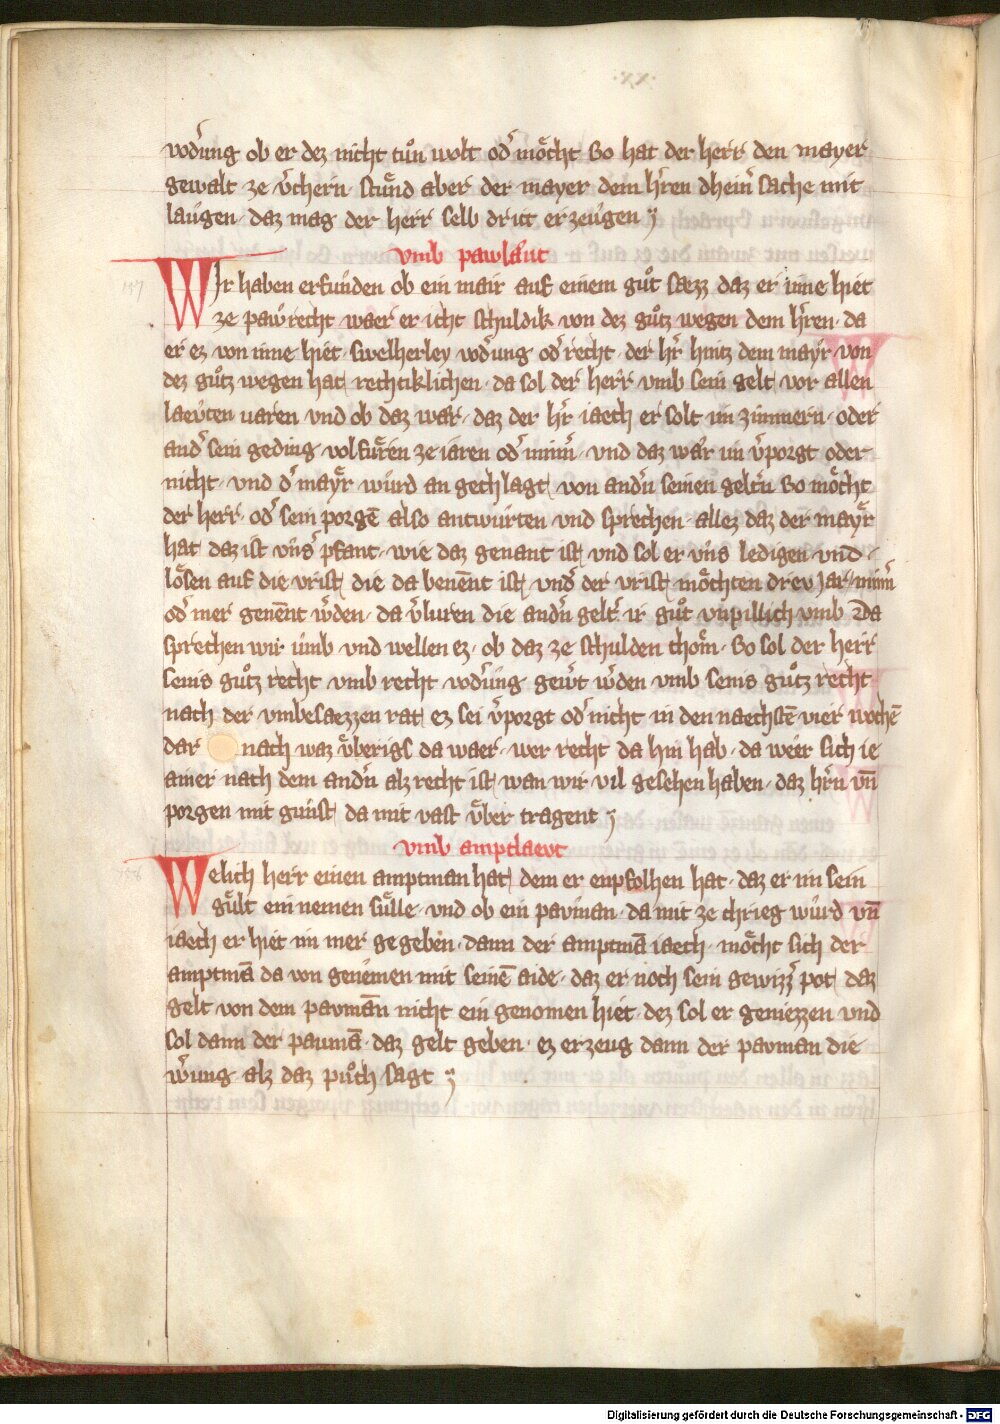 ·xx·
vodͤung ob er dez nicht tuͦn wolt odͤ moͤcht So hat der herr den mayer
gewalt ze v̓chern · stuͤnd aber der mayer dem hr̓en dhein̓ sache mit
laugen · daz mag der herr selb dritt erzeugen
vmb pawlaͤut
WIr haben erfunden ob ein mair auf einem guͦt sazz daz er inne hiet
ze pawrecht waer er icht schuldik von dez guͦtz wegen dem hr̓en · da
er ez von inne hiet · swelherley vod̓ung od̓ recht · der hr̓ hintz dem mayr̓ von
dez guͦtz wegen hat rechtiklichen · da sol der herr vmb sein gelt vor allen
laeuten uaren vnd ob daz war̓ · daz der hr̓ iaech er solt im zimmern · oder
and̓ sein geding · volfuͤren ze iaren od̓ minn̓ · vnd daz war̓ im v̓porgt oder
nicht · vnd d̓ maẙr wurd an gechlagt von and̓n seinen gelt̓n So moͤcht
der herr · od̓ sein porgē also antwurten vnd sprechen · allez daz der mayr̓
hat daz ist vns̓ pfant · wie daz genant ist vnd sol er vns ledigen vnd ·
loͤsen auf die vrist die da benent ist vnd̓ der vrist moͤchten drev Jar minn̓
od̓ mer genent w̓den · da v̓luren die and̓n gelt̓ ir guͦt vnpillich vmb Da
sprechen wir vmb vnd wellen ez · ob daz ze schulden choͤm · So sol der herr
seins guͦtz recht vmb recht vod̓ung gew̓t w̓den vmb seins guͦtz recht
nach der vmbesaezzen rat ez sei v̓porgt od̓ nicht in den naechstē vier wochē
dar nach waz v̓berigs da waer · wer recht da hin hab · da weer sich ie
ainer nach dem and̓n alz recht ist wan wir vil gesehen haben · daz hr̓n vn̄
porgen mit gunst da mit vast uͤber tragent
vmb amptlaevt
Welich herr einen amptman hat dem er enpfolhen hat · daz er im sein
guͤlt ein nemen suͤlle · vnd ob ein pavman · da mit ze chrieg wurd vn̄
iaech er hiet im mer gegeben · dann der amptmā iaech · moͤcht sich der
amptmā da von genemen mit seinē aide · daz er noch sein gewizz̓ pot daz
gelt von dem pavman nicht ein genomen hiet · dez sol er geniezzen vnd
sol dann der paumā · daz gelt geben · ez erzeug dann der pavman die
w̓ung alz daz puͦch sagt
147
Digitalisierung gefördert durch die Deutsche Forschungsgemeinschaft - DFG